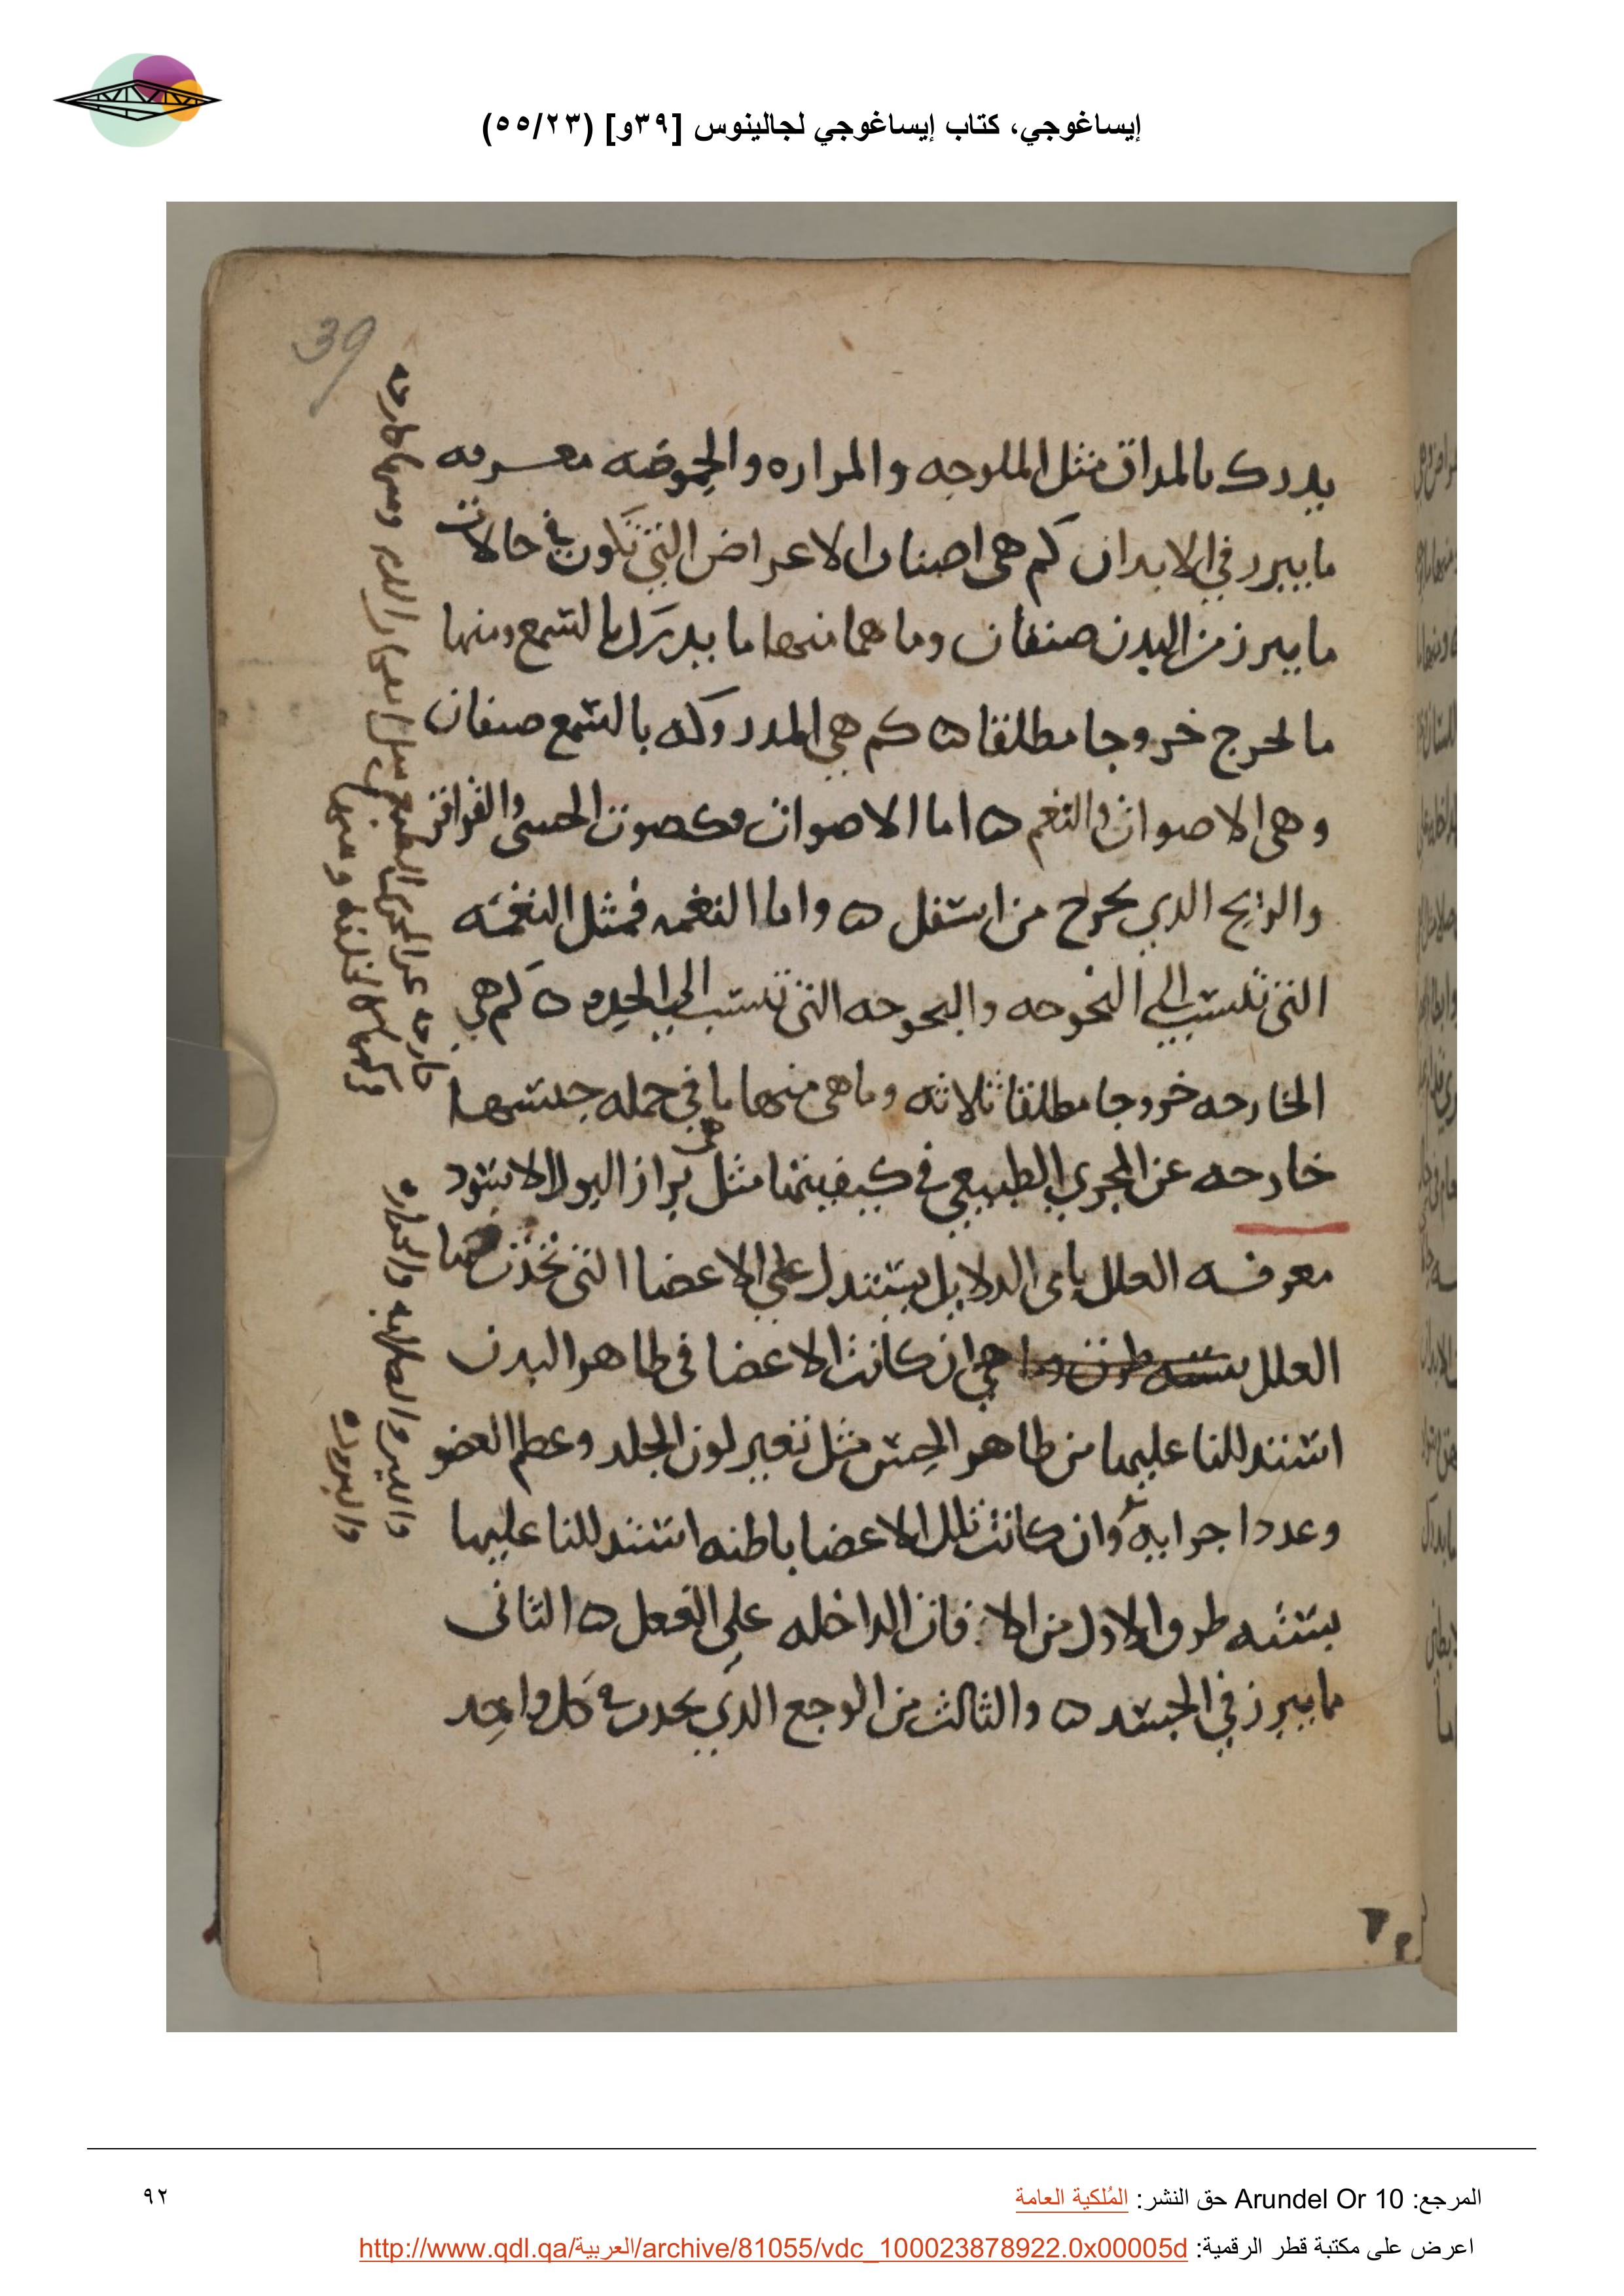 إيساغوجي، كتاب إيساغوجي لجالينوس [٣٩و] (٥٥/٢٣)
39
يدرك بالمداق مثل الملوحه والمراره والحموضه معرفه
ما يبرر في الابدان كم هى اصناف الاعراض التي تكون في حالات
ما يبرز من البدن صنفان وما هما منها ما يدرك بالسمع ومنها
ما يخرج خروجا مطلقا ه كم هي المدروكه بالسمع صنفان
وهى الاصوات والنغم ه اما الاصوات فكصوت الجسى والقراقر
والريح الدي يخرج من اسفل ه واما النغمه فمثل النغمه
التى تنسب الى البحوحه والبحوحه التى تنسب الى الحده ه كم هي
الخارجه خروجا مطلقا ثلاثه وما هى منها ما في جمله جنسها
خارجه عن المجري الطبيعي في كيفيتها مثل براز البول الاسود
معرفه العلل باى الدلايل يستدل على الاعضا التى تحدث بها
العلل هي ان كانت الاعضا في ظاهر البدن
استدللنا عليها من ظاهر الحس مثل تغير لون الجلد وعظم العضو
وعدد اجرايه وان كانت تلك الاعضا باطنه استدللنا عليها
بسته طرق الاول من الافات الداخله على الفعل ه الثانى
ما يبرز في الجسد ه والثالث من الوجع الدي يحدث في كل واحد
خارجه عن المجرى الطبيعي
واللين والصلابه والحراره
والبروده
المرجع: Arundel Or 10 حق النشر: المُلكية العامة
٩٢
اعرض على مكتبة قطر الرقمية: http://www.qdl.qa/العربية/archive/81055/vdc_100023878922.0x00005d